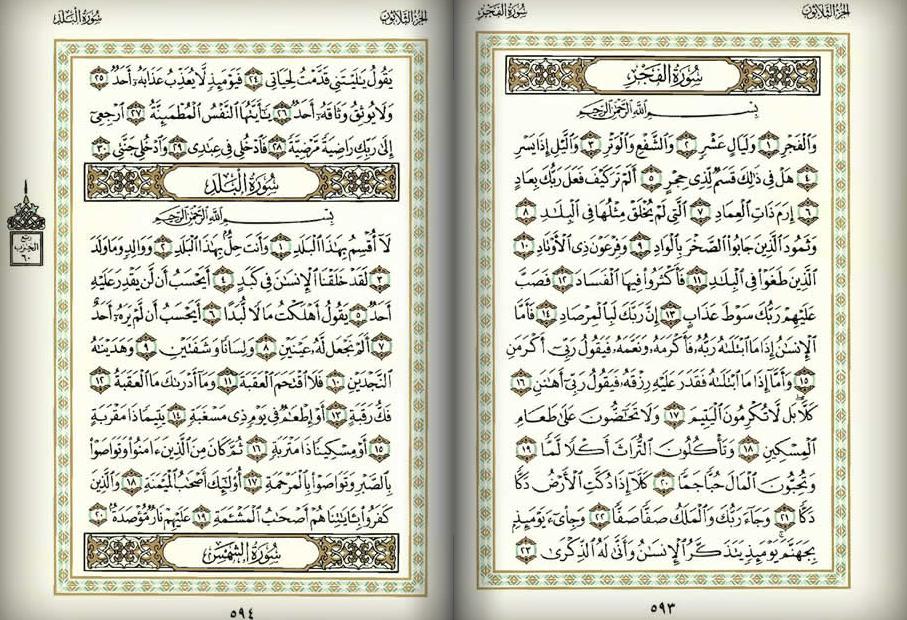 سُورَةُ الفَجْرِ
الجُزْءُ الثَّلَاثُونَ
سُورَةُ الفَجْرِ
بِسْمِ اللَّهِ الرَّحْمَٰنِ الرَّحِيمِ
وَٱلْفَجْرِ ١ وَلَيَالٍ عَشْرٍ ٢ وَٱلشَّفْعِ وَٱلْوَتْرِ ٣ وَٱلَّيْلِ إِذَا يَسْرِ
٤ هَلْ فِى ذَٰلِكَ قَسَمٌ لِّذِى حِجْرٍ ٥ أَلَمْ تَرَ كَيْفَ فَعَلَ رَبُّكَ بِعَادٍ
٦ إِرَمَ ذَاتِ ٱلْعِمَادِ ٧ ٱلَّتِى لَمْ يُخْلَقْ مِثْلُهَا فِى ٱلْبِلَٰدِ ٨
وَثَمُودَ ٱلَّذِينَ جَابُوا۟ ٱلصَّخْرَ بِٱلْوَادِ ٩ وَفِرْعَوْنَ ذِى ٱلْأَوْتَادِ ١٠
ٱلَّذِينَ طَغَوْا۟ فِى ٱلْبِلَٰدِ ١١ فَأَكْثَرُوا۟ فِيهَا ٱلْفَسَادَ ١٢ فَصَبَّ
عَلَيْهِمْ رَبُّكَ سَوْطَ عَذَابٍ ١٣ إِنَّ رَبَّكَ لَبِٱلْمِرْصَادِ ١٤ فَأَمَّا
ٱلْإِنسَٰنُ إِذَا مَا ٱبْتَلَىٰهُ رَبُّهُۥ فَأَكْرَمَهُۥ وَنَعَّمَهُۥ فَيَقُولُ رَبِّىٓ أَكْرَمَنِ
١٥ وَأَمَّآ إِذَا مَا ٱبْتَلَىٰهُ فَقَدَرَ عَلَيْهِ رِزْقَهُۥ فَيَقُولُ رَبِّىٓ أَهَٰنَنِ ١٦
كَلَّا ۖ بَل لَّا تُكْرِمُونَ ٱلْيَتِيمَ ١٧ وَلَا تَحَٰٓضُّونَ عَلَىٰ طَعَامِ
ٱلْمِسْكِينِ ١٨ وَتَأْكُلُونَ ٱلتُّرَاثَ أَكْلًا لَّمًّا ١٩
وَتُحِبُّونَ ٱلْمَالَ حُبًّا جَمًّا ٢٠ كَلَّآ إِذَا دُكَّتِ ٱلْأَرْضُ دَكًّا
دَكًّا ٢١ وَجَآءَ رَبُّكَ وَٱلْمَلَكُ صَفًّا صَفًّا ٢٢ وَجِا۟ىٓءَ يَوْمَئِذٍۭ
بِجَهَنَّمَ ۚ يَوْمَئِذٍ يَتَذَكَّرُ ٱلْإِنسَٰنُ وَأَنَّىٰ لَهُ ٱلذِّكْرَىٰ ٢٣
٥٩٣
سُورَةُ البَلَدِ
الجُزْءُ الثَّلَاثُونَ
يَقُولُ يَٰلَيْتَنِى قَدَّمْتُ لِحَيَاتِى ٢٤ فَيَوْمَئِذٍ لَّا يُعَذِّبُ عَذَابَهُۥٓ أَحَدٌ ٢٥
وَلَا يُوثِقُ وَثَاقَهُۥٓ أَحَدٌ ٢٦ يَٰٓأَيَّتُهَا ٱلنَّفْسُ ٱلْمُطْمَئِنَّةُ ٢٧ ٱرْجِعِىٓ
إِلَىٰ رَبِّكِ رَاضِيَةً مَّرْضِيَّةً ٢٨ فَٱدْخُلِى فِى عِبَٰدِى ٢٩ وَٱدْخُلِى جَنَّتِى ٣٠
سُورَةُ البَلَدِ
بِسْمِ اللَّهِ الرَّحْمَٰنِ الرَّحِيمِ
لَآ أُقْسِمُ بِهَٰذَا ٱلْبَلَدِ ١ وَأَنتَ حِلٌّۢ بِهَٰذَا ٱلْبَلَدِ ٢ وَوَالِدٍ وَمَا وَلَدَ
٣ لَقَدْ خَلَقْنَا ٱلْإِنسَٰنَ فِى كَبَدٍ ٤ أَيَحْسَبُ أَن لَّن يَقْدِرَ عَلَيْهِ
أَحَدٌ ٥ يَقُولُ أَهْلَكْتُ مَالًا لُّبَدًا ٦ أَيَحْسَبُ أَن لَّمْ يَرَهُۥٓ أَحَدٌ
٧ أَلَمْ نَجْعَل لَّهُۥ عَيْنَيْنِ ٨ وَلِسَانًا وَشَفَتَيْنِ ٩ وَهَدَيْنَٰهُ
ٱلنَّجْدَيْنِ ١٠ فَلَا ٱقْتَحَمَ ٱلْعَقَبَةَ ١١ وَمَآ أَدْرَىٰكَ مَا ٱلْعَقَبَةُ ١٢
فَكُّ رَقَبَةٍ ١٣ أَوْ إِطْعَٰمٌ فِى يَوْمٍ ذِى مَسْغَبَةٍ ١٤ يَتِيمًا ذَا مَقْرَبَةٍ
١٥ أَوْ مِسْكِينًا ذَا مَتْرَبَةٍ ١٦ ثُمَّ كَانَ مِنَ ٱلَّذِينَ ءَامَنُوا۟ وَتَوَاصَوْا۟
بِٱلصَّبْرِ وَتَوَاصَوْا۟ بِٱلْمَرْحَمَةِ ١٧ أُو۟لَٰٓئِكَ أَصْحَٰبُ ٱلْمَيْمَنَةِ ١٨ وَٱلَّذِينَ
كَفَرُوا۟ بِـَٔايَٰتِنَا هُمْ أَصْحَٰبُ ٱلْمَشْـَٔمَةِ ١٩ عَلَيْهِمْ نَارٌ مُّؤْصَدَةٌۢ ٢٠
سُورَةُ الشَّمْسِ
ربع
الحزب
٦٠
٥٩٤